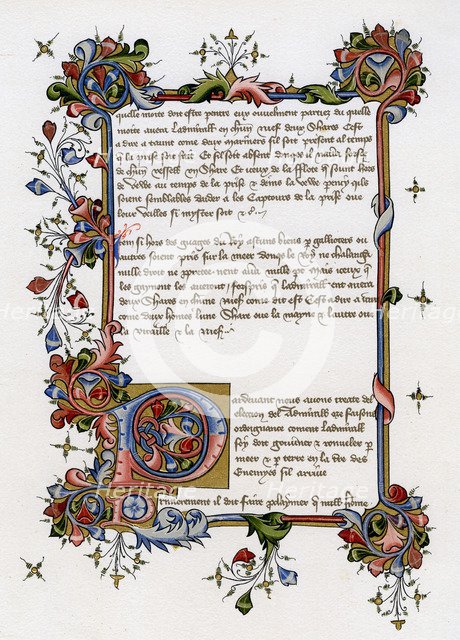 quelle moite doit estre partie eux ouvelment parties du quelle
moite avera Ladmirall en chun nief deux Shares Cest
a dire a taunt come deux mariners sil soit present al temps
que la prise soit fait Et sil soit absent donqes il navera forsqe
de chun vessell un Share Et ceux de la fflote qi sount hors
de veue au temps de la prise & deins la veue
soient semblables aider a les Captours de la prise ou
leur veilles si myster soit &
Item si hors des guages du Roy ascuns biens p galliotters ou
autres soient pris sur la meer donqe le Roy ne chalangera
mille droit ne apptenent aux mais ceux qi
les gaynont les averont forspris qe Ladmirall ent avera
deux Shares en chune nief come dit est Cest a dire a taunt
come deux homes lune Share ou la mayn & lautre ou
la vitaille & la nief
Pardevant nous avons treate del
eleccion del Admirall ore faisons
ordeignance coment Ladmirall
soy doit governer & reuveler p
meer & p terre en la tre des
Enemyes sil arrive
Primerement il doit faire pclaymer qe null home
Heritage
Heritage